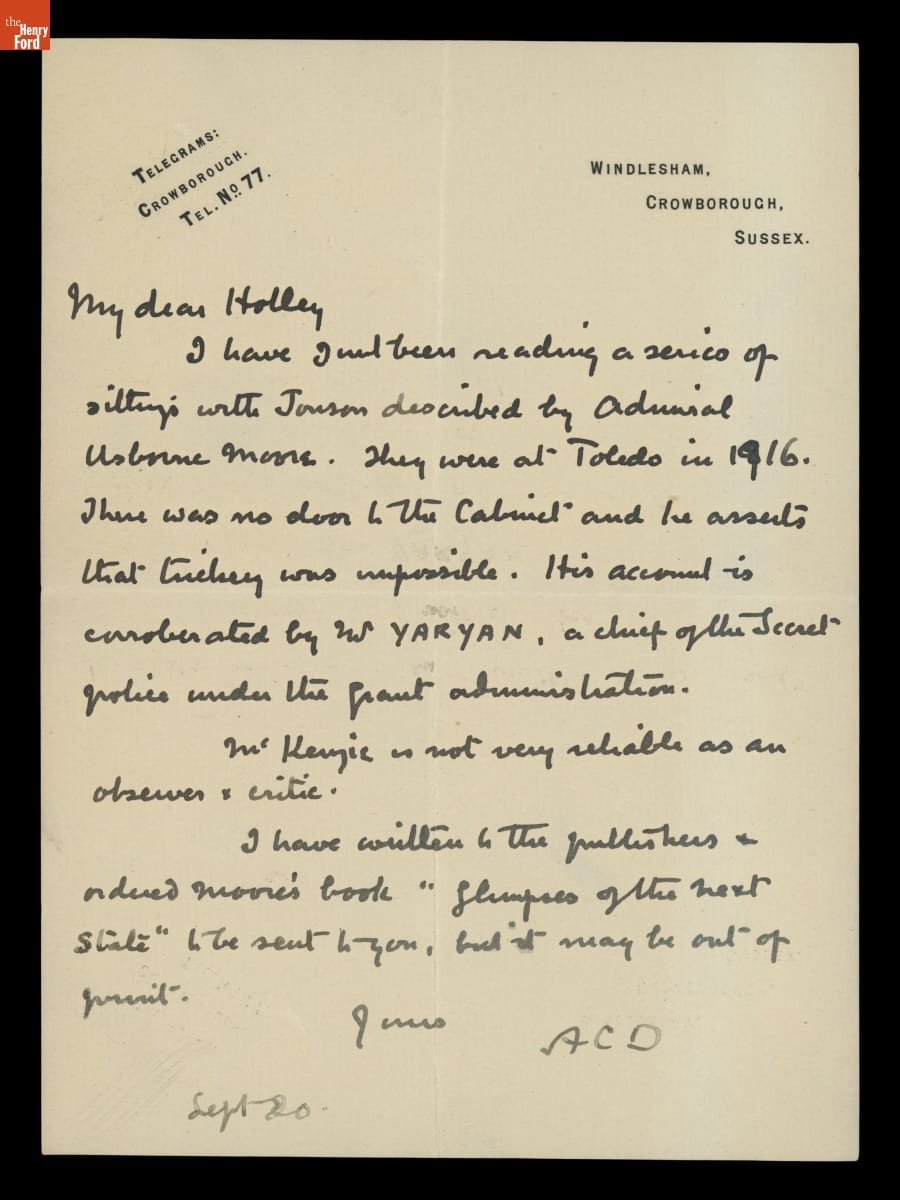 the
Henry
Ford
TELEGRAMS:
CROWBOROUGH.
TEL. No. 77.
WINDLESHAM,
CROWBOROUGH,
SUSSEX.
My dear Holley
I have Just been reading a series of
sittings with Jonson described by Admiral
Usborne Moore. They were at Toledo in 1916.
There was no door to the Cabinet and he asserts
that trickery was impossible. His account is
corroberated by Mr YARYAN, a chief of the Secret
police under the Grant administration.
Mc Kenzie is not very reliable as an
observer & critic.
I have written to the publishers &
ordered Moore's book "Glimpses of the next
State" to be sent to you, but it may be out of
print.
Yours
ACD
Sept 20.